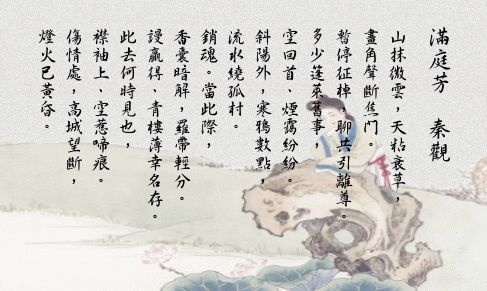 滿庭芳　秦觀
山抹微雲，天粘衰草，
畫角聲斷焦門。
暫停征棹，聊共引離尊。
多少蓬萊舊事，
空回首、煙靄紛紛。
斜陽外，寒鴉數點，
流水繞孤村。
銷魂。當此際，
香囊暗解，羅帶輕分。
謾贏得、青樓薄幸名存。
此去何時見也，
襟袖上、空惹啼痕。
傷情處，高城望斷，
燈火已黃昏。